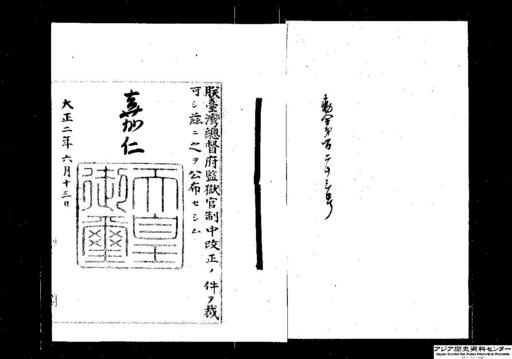 勅令第百二十三号
朕臺灣總督府監獄官制中改正ノ件ヲ裁
可シ茲ニ之ヲ公布セシム
嘉仁
天皇
御璽
大正二年六月十三日
アジア歴史資料センター
Japan Center for Asian Historical Records